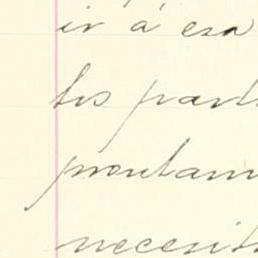 ir á esa
los part
prontam
necesit